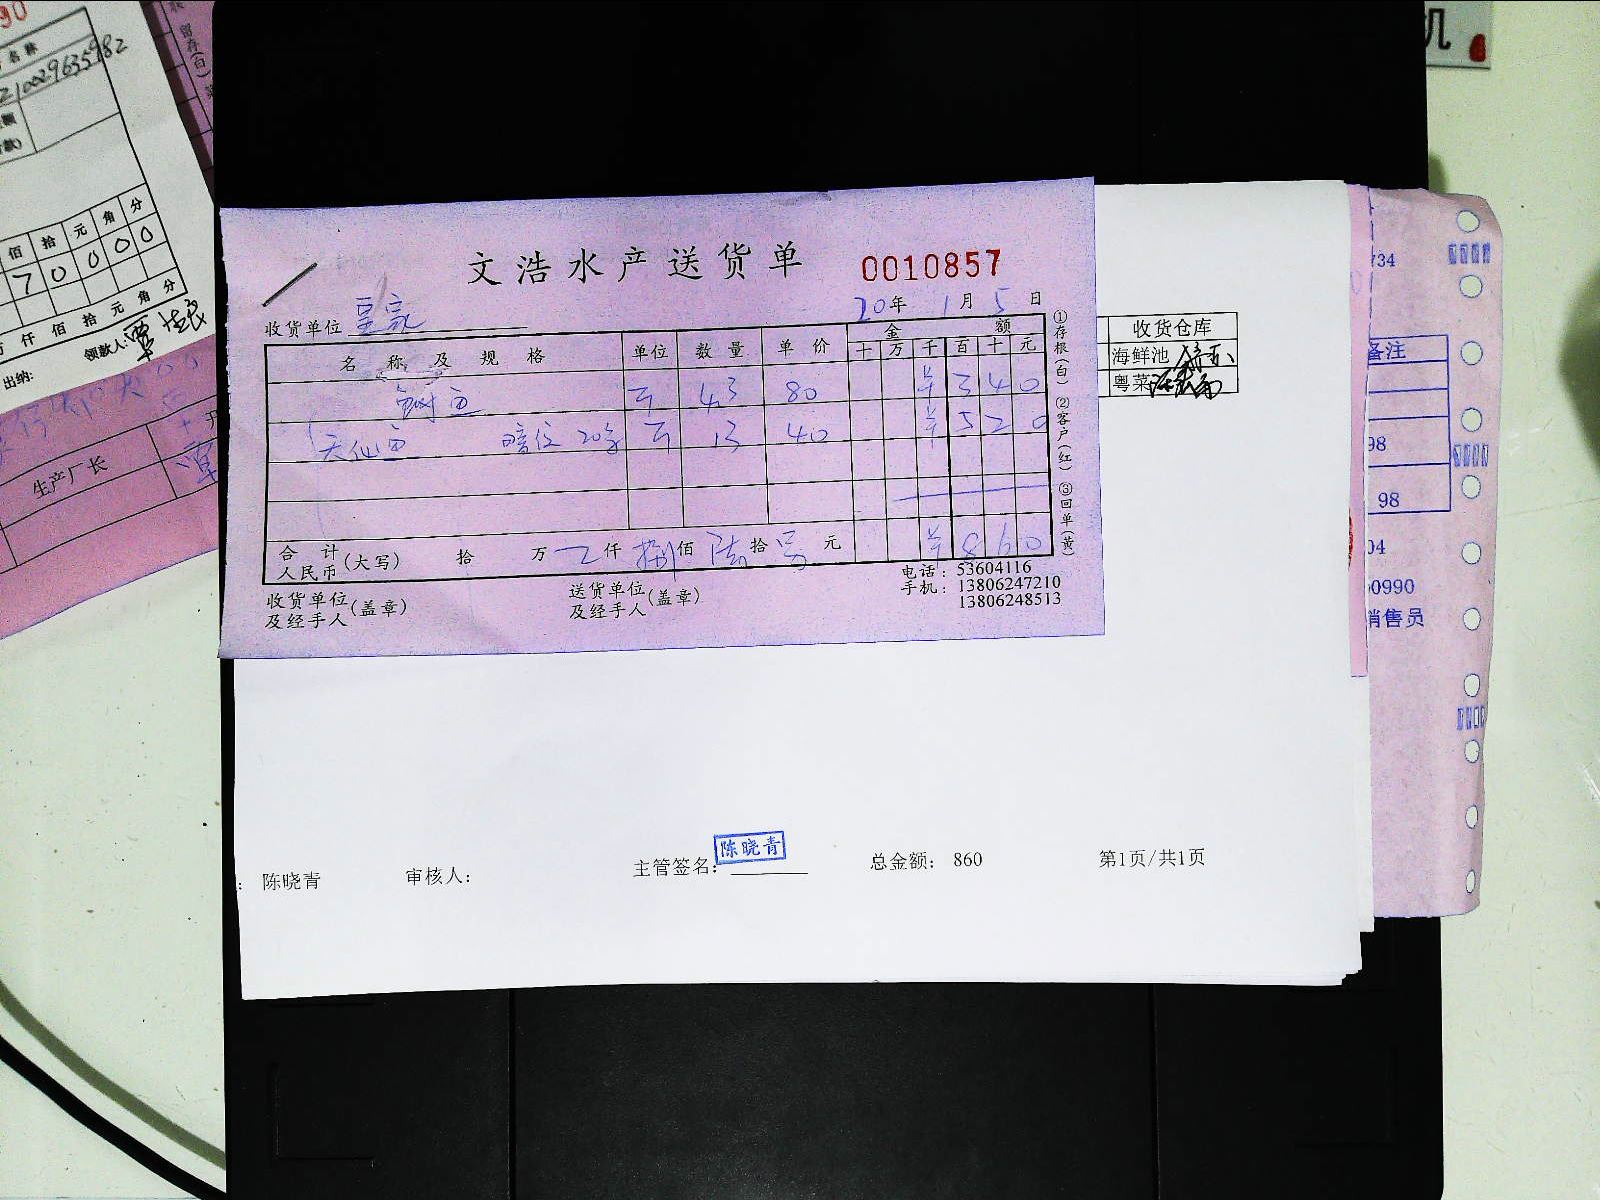 文浩水产送货单 0010857
20年1月5日
收货单位
名称及规格 单位 数量 单价 金额
十 万 千 百 十 元
43 80 ¥ 3 4 0
天仙 20条 13 40 ¥ 5 2 0
合计人民币(大写) 拾 万 仟 捌佰 陆拾 元 ¥ 8 6 0
①存根(白) ②客户(红) ③回单(黄)
收货单位及经手人(盖章)
送货单位及经手人(盖章)
电话:53604116
手机:13806247210
13806248513
收货仓库
海鲜池
粤菜
: 陈晓青
审核人:
主管签名: 陈晓青
总金额: 860
第1页/共1页
名称
210029635982
佰 拾 元 角 分
7 0 0 0 0 0
万 仟 佰 拾 元 角 分
领款人:
出纳:
生产厂长
留存(白)
机
734
备注
98
98
04
0990
销售员